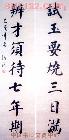 試玉要燒三日滿
辨才須待七年期